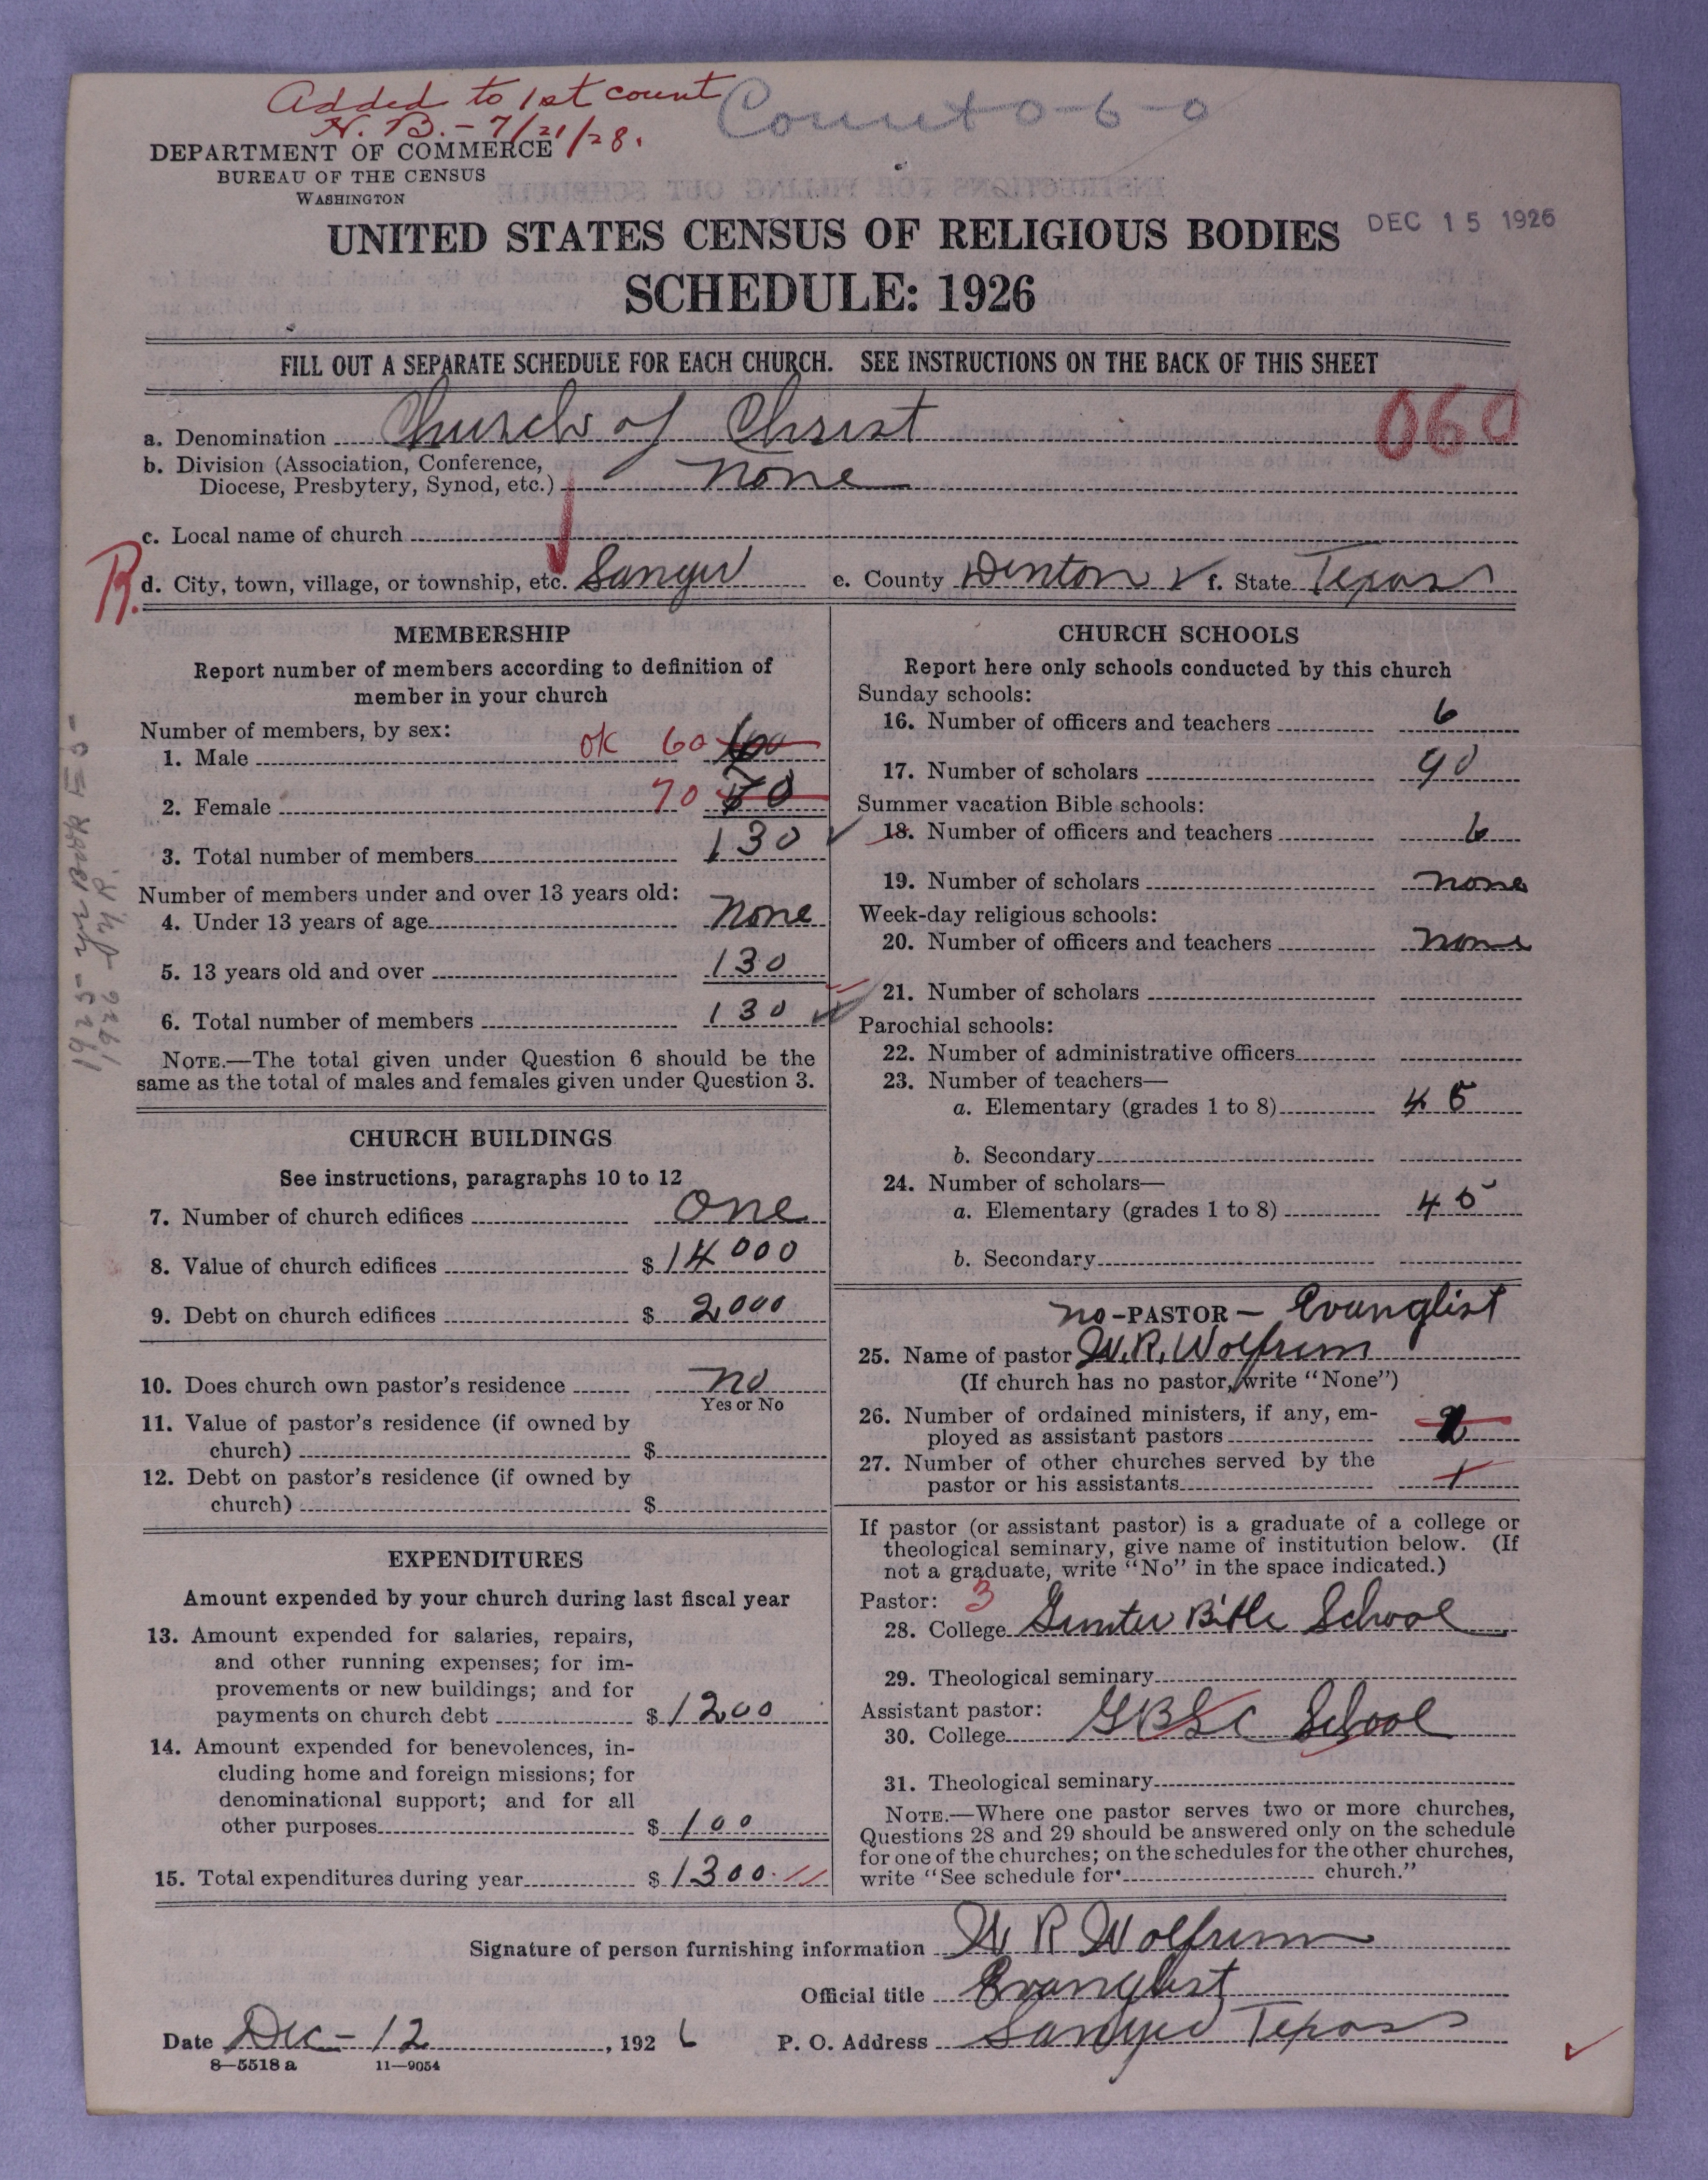 Added to 1st count
N. B. - 7/21/28.
Count 0-6-0
DEPARTMENT OF COMMERCE
BUREAU OF THE CENSUS
WASHINGTON
UNITED STATES CENSUS OF RELIGIOUS BODIES
DEC 15 1926
SCHEDULE: 1926
FILL OUT A SEPARATE SCHEDULE FOR EACH CHURCH. SEE INSTRUCTIONS ON THE BACK OF THIS SHEET
a. Denomination Church of Christ
060
b. Division (Association, Conference,
Diocese, Presbytery, Synod, etc.) None
c. Local name of church
R.
d. City, town, village, or township, etc. Sanger e. County Denton f. State Texas
MEMBERSHIP
Report number of members according to definition of
member in your church
Number of members, by sex:
1. Male ok 60 60
2. Female 70 70
3. Total number of members 130
Number of members under and over 13 years old:
4. Under 13 years of age None
5. 13 years old and over 130
6. Total number of members 130
NOTE.—The total given under Question 6 should be the
same as the total of males and females given under Question 3.
CHURCH BUILDINGS
See instructions, paragraphs 10 to 12
7. Number of church edifices One
8. Value of church edifices $ 14000
9. Debt on church edifices $ 2000
10. Does church own pastor's residence No
Yes or No
11. Value of pastor's residence (if owned by
church) $
12. Debt on pastor's residence (if owned by
church) $
EXPENDITURES
Amount expended by your church during last fiscal year
13. Amount expended for salaries, repairs,
and other running expenses; for im-
provements or new buildings; and for
payments on church debt $ 1200
14. Amount expended for benevolences, in-
cluding home and foreign missions; for
denominational support; and for all
other purposes $ 100
15. Total expenditures during year $ 1300.
CHURCH SCHOOLS
Report here only schools conducted by this church
Sunday schools:
16. Number of officers and teachers 6
17. Number of scholars 90
Summer vacation Bible schools:
18. Number of officers and teachers 6
19. Number of scholars none
Week-day religious schools:
20. Number of officers and teachers none
21. Number of scholars
Parochial schools:
22. Number of administrative officers
23. Number of teachers—
a. Elementary (grades 1 to 8) 45
b. Secondary
24. Number of scholars—
a. Elementary (grades 1 to 8) 45
b. Secondary
no - PASTOR - Evanglist
25. Name of pastor W. R. Wolfrum
(If church has no pastor, write "None")
26. Number of ordained ministers, if any, em-
ployed as assistant pastors
27. Number of other churches served by the
pastor or his assistants 1
If pastor (or assistant pastor) is a graduate of a college or
theological seminary, give name of institution below. (If
not a graduate, write "No" in the space indicated.)
Pastor: 3
28. College Gunter Bible School
29. Theological seminary
Assistant pastor:
30. College School
31. Theological seminary
NOTE.—Where one pastor serves two or more churches,
Questions 28 and 29 should be answered only on the schedule
for one of the churches; on the schedules for the other churches,
write "See schedule for church."
Signature of person furnishing information W R Wolfrum
Official title Evanglist
Date Dec - 12, 1926 P. O. Address Sanger Texas
8—5518 a 11—9054